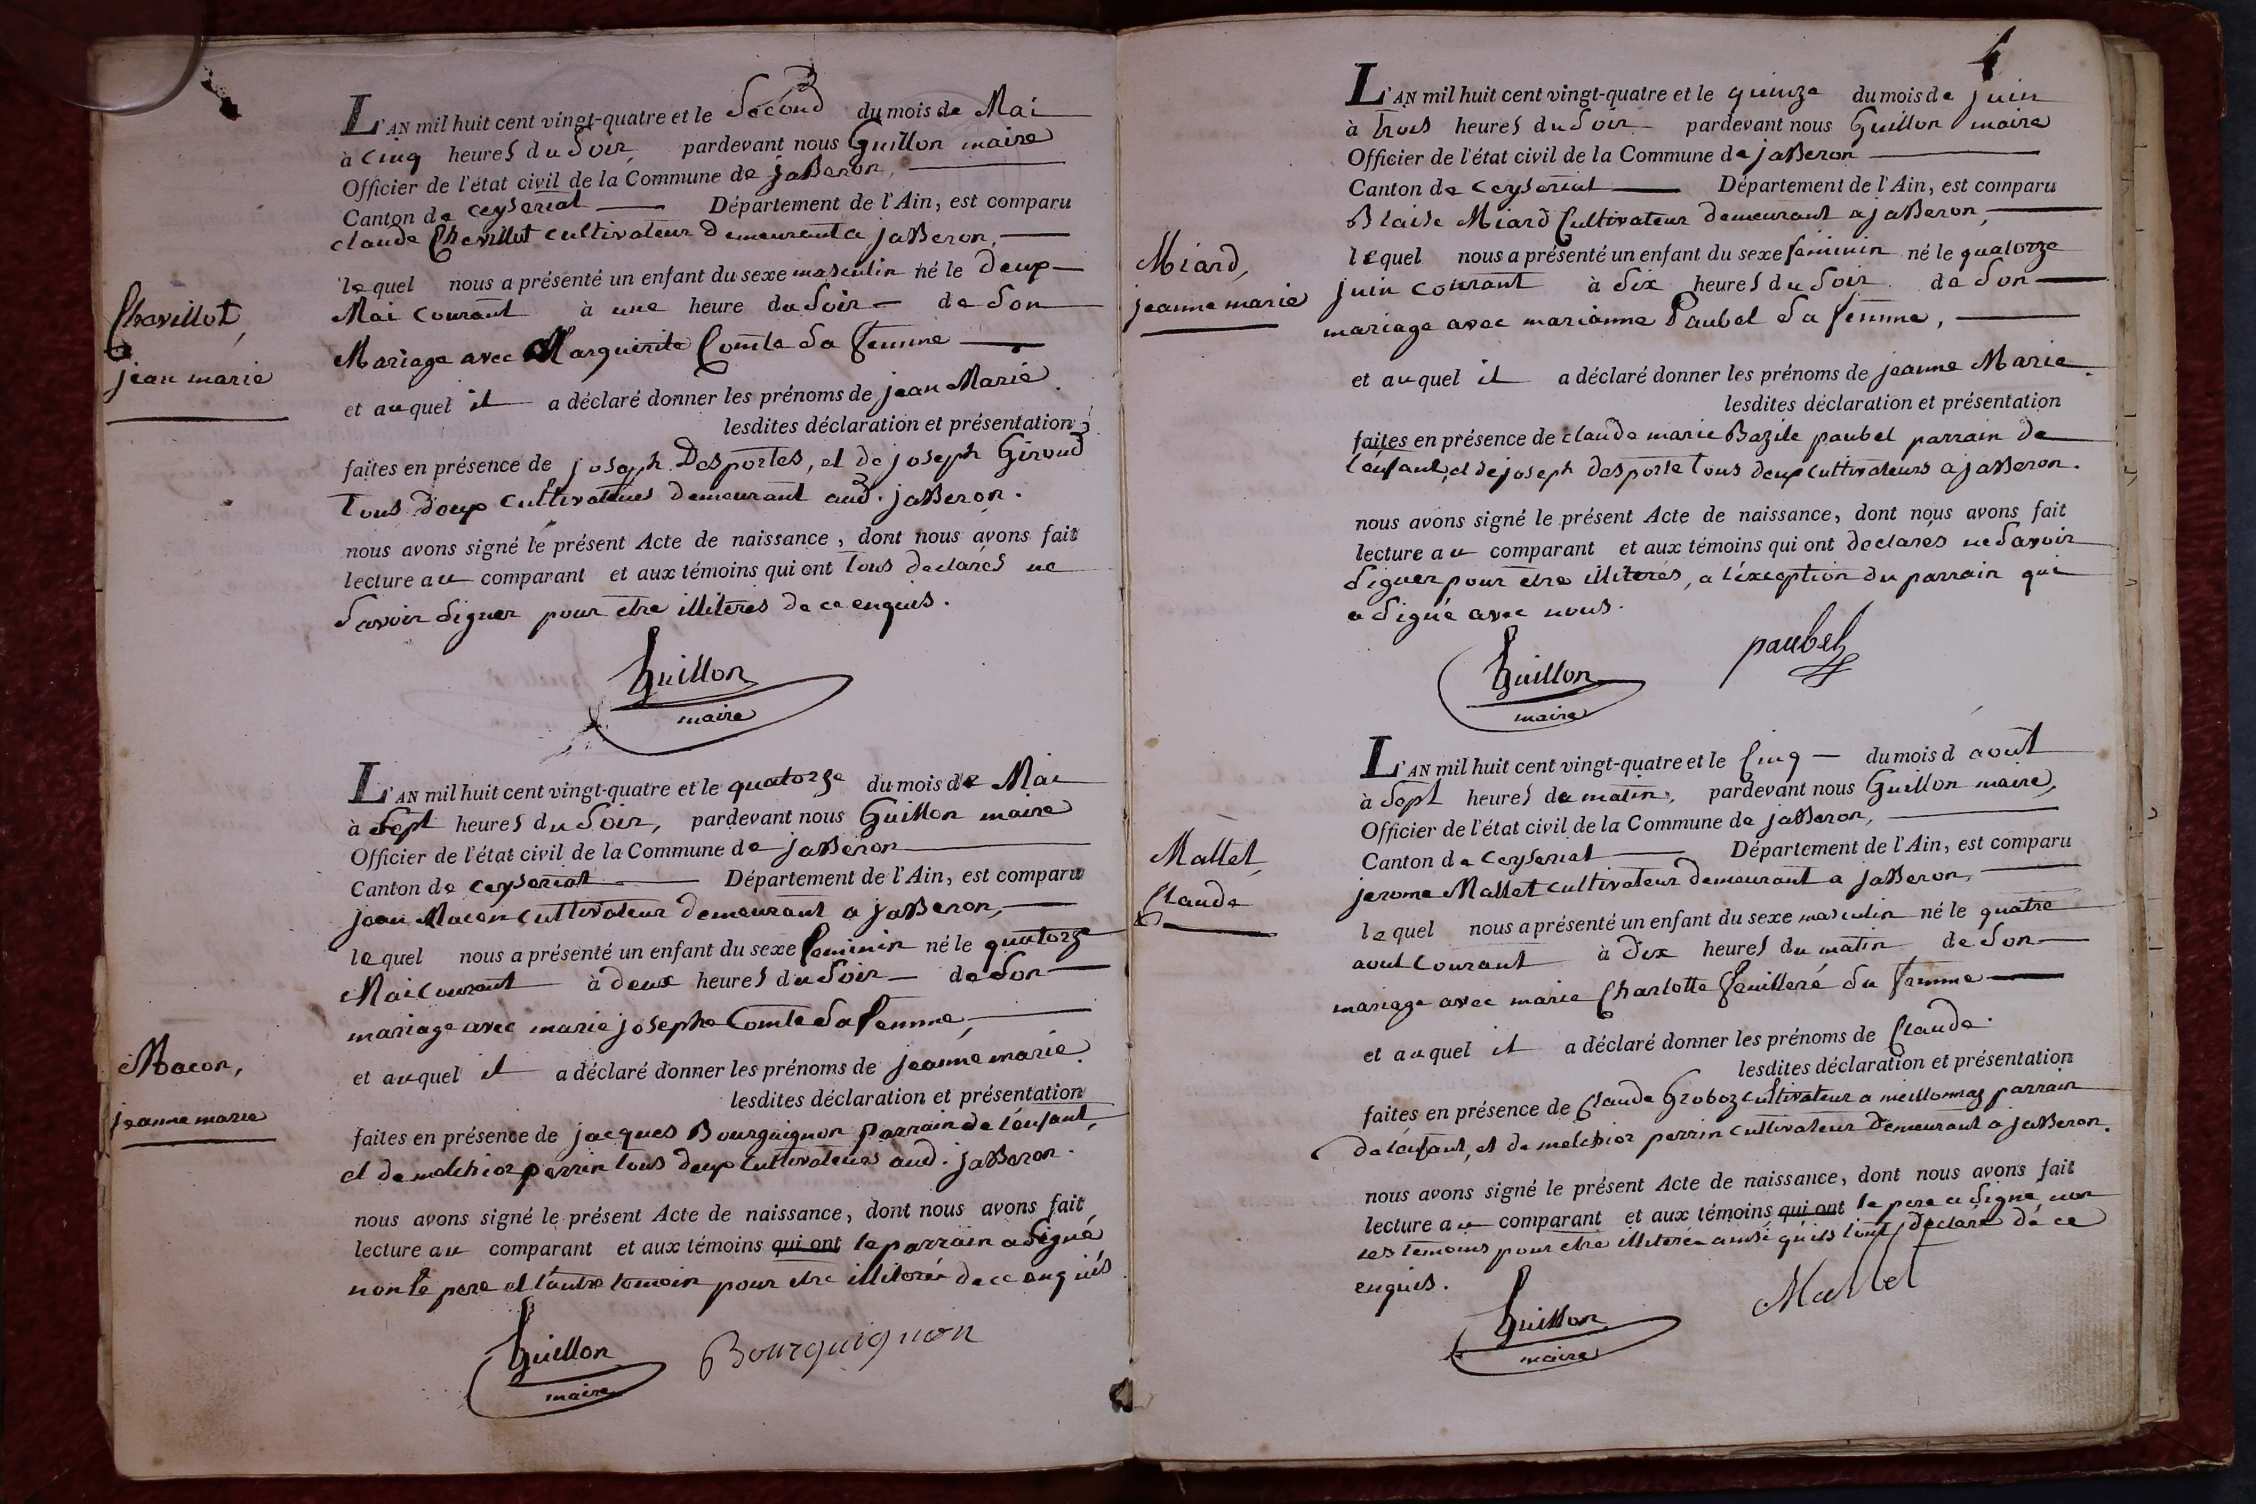 L'AN mil huit cent vingt-quatre et le Second du mois de Mai
à cinq heures du Soir, pardevant nous Guillon maire
Officier de l'état civil de la Commune de jasseron,
Canton de ceyseriat Département de l'Ain, est comparu
claude Chevillot cultivateur demeurant a jasseron,
lequel nous a présenté un enfant du sexe masculin né le deux
Mai courant à une heure du Soir de Son
Mariage avec Marguerite Comte Sa femme
et auquel il a déclaré donner les prénoms de jean Marie.
lesdites déclaration et présentation
faites en présence de joseph Desportes, et de joseph Giroud
tous deux cultivateurs demeurant aud. jasseron.
nous avons signé le présent Acte de naissance, dont nous avons fait
lecture au comparant et aux témoins qui ont tous declarés ne
Savoir Signer pour etre illiterés de ce enquis.
Guillon
maire
Chevillot,
jean marie
L'AN mil huit cent vingt-quatre et le quatorze du mois de Mai
à Sept heures du Soir, pardevant nous Guillon maire
Officier de l'état civil de la Commune de jasseron
Canton de ceyseriat Département de l'Ain, est comparu
jean Macon cultivateur demeurant a jasseron,
lequel nous a présenté un enfant du sexe feminin né le quatorze
Mai courant à deux heures du Soir de Son
mariage avec marie josephe Comte Sa femme,
et auquel il a déclaré donner les prénoms de jeanne marie.
lesdites déclaration et présentation
faites en présence de jacques Bourguignon parrain de l'enfant,
et de melchior perrin tous deux cultivateurs aud. jasseron.
nous avons signé le présent Acte de naissance, dont nous avons fait
lecture au comparant et aux témoins qui ont le parrain a Signé
non le pere et l'autre temoin pour etre illiterés de ce enquis
Guillon
maire
Bourguignon
Macon,
jeanne marie
4
L'AN mil huit cent vingt-quatre et le quinze du mois de juin
à trois heures du Soir pardevant nous Guillon maire
Officier de l'état civil de la Commune de jasseron
Canton de ceyseriat Département de l'Ain, est comparu
Blaise Miard Cultivateur demeurant a jasseron,
lequel nous a présenté un enfant du sexe feminin né le quatorze
juin courant à Six heures du Soir de Son
mariage avec marianne Paubel Sa femme,
et auquel il a déclaré donner les prénoms de jeanne Marie.
lesdites déclaration et présentation
faites en présence de claude marie Bazile paubel parrain de
l'enfant, et de joseph desporte tous deux cultivateurs a jasseron.
nous avons signé le présent Acte de naissance, dont nous avons fait
lecture au comparant et aux témoins qui ont declarés ne Savoir
Signer pour etre illiterés, a l'exception du parrain qui
a Signé avec nous.
Guillon
maire
paubel
Miard,
jeanne marie
L'AN mil huit cent vingt-quatre et le Cinq du mois d aout
à Sept heures du matin, pardevant nous Guillon maire,
Officier de l'état civil de la Commune de jasseron,
Canton de Ceyseriat Département de l'Ain, est comparu
jerome Mallet cultivateur demeurant a jasseron,
lequel nous a présenté un enfant du sexe masculin né le quatre
aout courant à dix heures du matin de Son
mariage avec marie Charlotte feuilleré Sa femme
et auquel il a déclaré donner les prénoms de Claude.
lesdites déclaration et présentation
faites en présence de Claude Groboz cultivateur a meillonnaz parrain
de l'enfant, et de melchior perrin cultivateur demeurant a jasseron.
nous avons signé le présent Acte de naissance, dont nous avons fait
lecture au comparant et aux témoins qui ont le pere a Signé non
les temoins pour etre illiterés ainsi qu'ils l'ont déclaré de ce
enquis.
Guillon
maire
Mallet
Mallet,
Claude